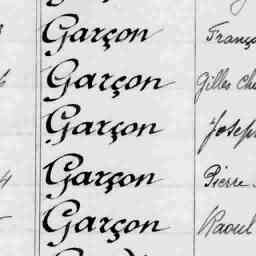 Garçon
Garçon Gilles
Garçon Joseph
4 Garçon Pierre
Garçon Raoul